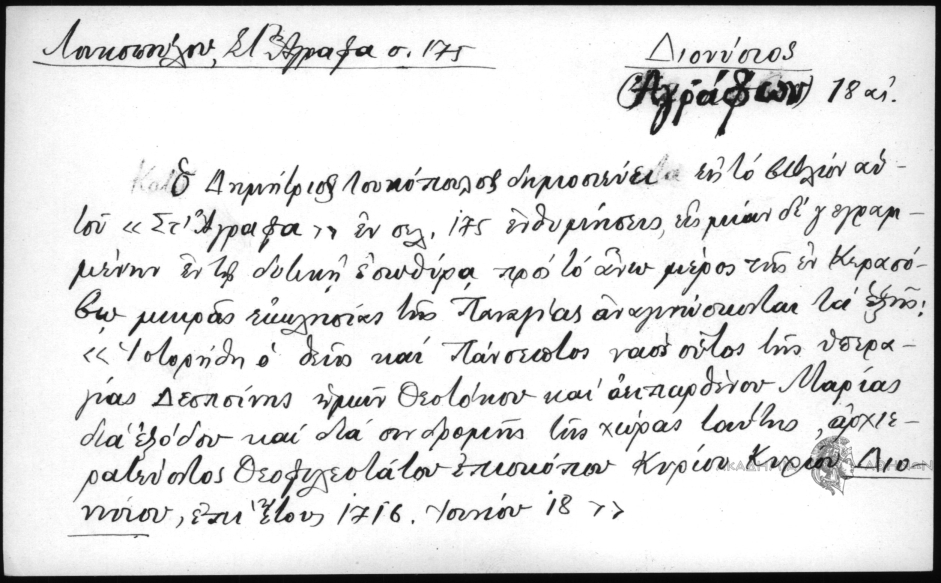 Λουκοπούλου, Στ' Ἄγραφα σ. 175
Διονύσιος
(Ἀγράφων) 18 αἰ.
Ὁ Δημήτριος Λουκόπουλος δημοσιεύει εἰς τό βιβλίον αὑ-
τοῦ « Στ' Ἄγραφα » ἐν σελ. 175 ἐνθυμήσεις, εἰς μίαν δέ γεγραμ-
μένην ἐν τῇ δυτικῇ ἐσωθύρᾳ πρός τό ἄνω μέρος τῆς ἐν Κερασό-
βῳ μικρᾶς ἐκκλησίας τῆς Παναγίας ἀναγινώσκονται τά ἑξῆς:
« Ἱστορήθη ὁ θεῖος καί πάνσεπτος ναός οὗτος τῆς ὑπερα-
γίας Δεσποίνης ἡμῶν Θεοτόκου καί ἀειπαρθένου Μαρίας
διά ἐξόδου καί διά συνδρομῆς τῆς χώρας ταύτης, ἀρχιε-
ρατεύοτος Θεοφιλεστάτου ἐπισκόπου Κυρίου Κυρίου Διο-
νυσίου, ἐπί ἔτους 1716. Ἰουνίου 18 »
ΑΚΑΔΗΜΙΑ ΑΘΗΝΩΝ